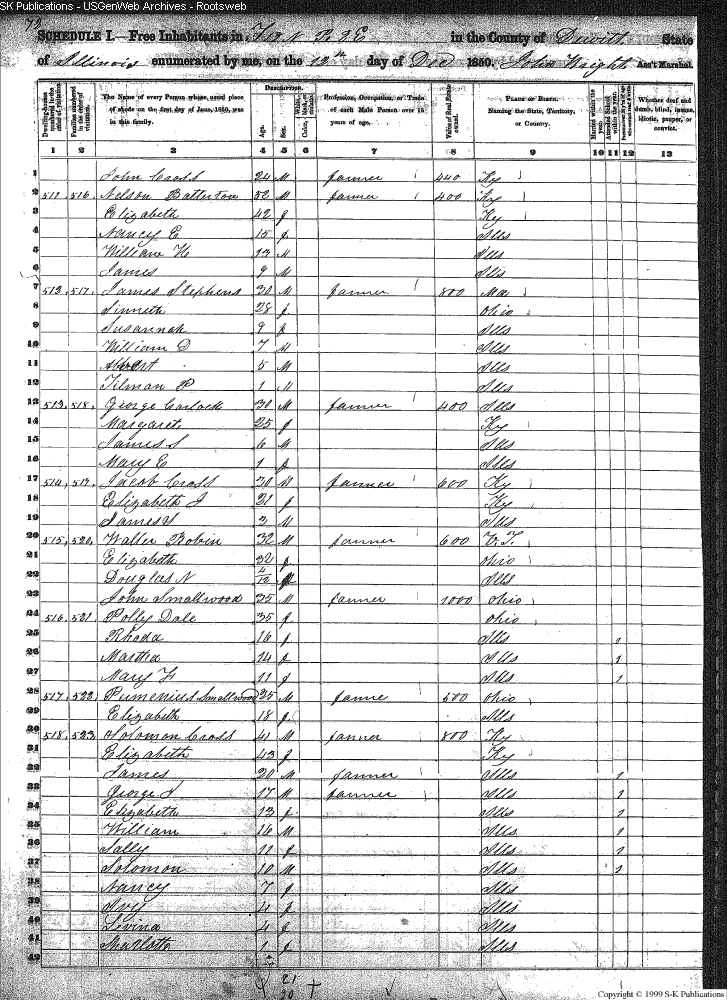 SK Publications - USGenWeb Archives - Rootsweb
SCHEDULE I.—Free Inhabitants in in the County of Dewitt State
of Illinois enumerated by me, on the 12th day of Dec 1850. John Wright Ass't Marshal.
Dwelling-houses numbered in the order of visitation. Families numbered in the order of visitation. The Name of every Person whose usual place of abode on the first day of June, 1850, was in this family. Description. Age. Sex. Color, Profession, Occupation, or Trade of each Male Person over 15 years of age. Value of Real Estate owned. Place of Birth. Naming the State, Territory, or Country. Married within the year. Attended School within the year. Whether deaf and dumb, blind, insane, idiotic, pauper, or convict.
1 2 3 4 5 6 7 8 9 10 11 12 13
1 John Cross 24 M farmer 440 Ky
2 511 516 Nelson Batterton 52 M farmer 400 Ky
3 Elizabeth 42 f Ky
4 Nancy E 15 f Ills
5 William H 13 M Ills
6 James 9 M Ills
7 512 517 James Stephens 30 M farmer 800
8 28 f Ohio
9 Susannah 9 f Ills
10 William D 7 M Ills
11 Albert 5 M Ills
12 Tilman P 1 M Ills
13 513 518 George Carlock 30 M farmer 400 Ills
14 Margaret 25 f Ky
15 James S 6 M Ills
16 Mary E 1 f Ills
17 514 519 Jacob Cross 30 M farmer 600 Ky
18 Elizabeth J 21 f Ky
19 James 3 M Ills
20 515 520 Walter Robin 32 M farmer 600 V.T.
21 Elizabeth 32 f Ohio
22 Douglas N 4/12 Ills
23 John Smallwood 35 M farmer 1000 Ohio
24 516 521 Polly Dale 35 f Ohio
25 Rhoda 16 f Ills 1
26 Martha 14 f Ills 1
27 Mary 11 f Ills 1
28 517 522 Smallwood 25 M farme Ohio
29 Elizabeth 18 f Ills
30 518 523 Solomon Cross 41 M farmer 800 Ky
31 Elizabeth 43 f Ky
32 James 20 M farmer Ills 1
33 George 17 M farmer Ills 1
34 Elizabeth 13 f Ills 1
35 William 16 M Ills 1
36 Sally 11 f Ills 1
37 Solomon 10 M Ills 1
38 Nancy 7 f Ills
39 Ivy 4 f Ills
40 Levina 4 f Ills
41 1 f Ills
42
21
20
Copyright © 1999 S-K Publications